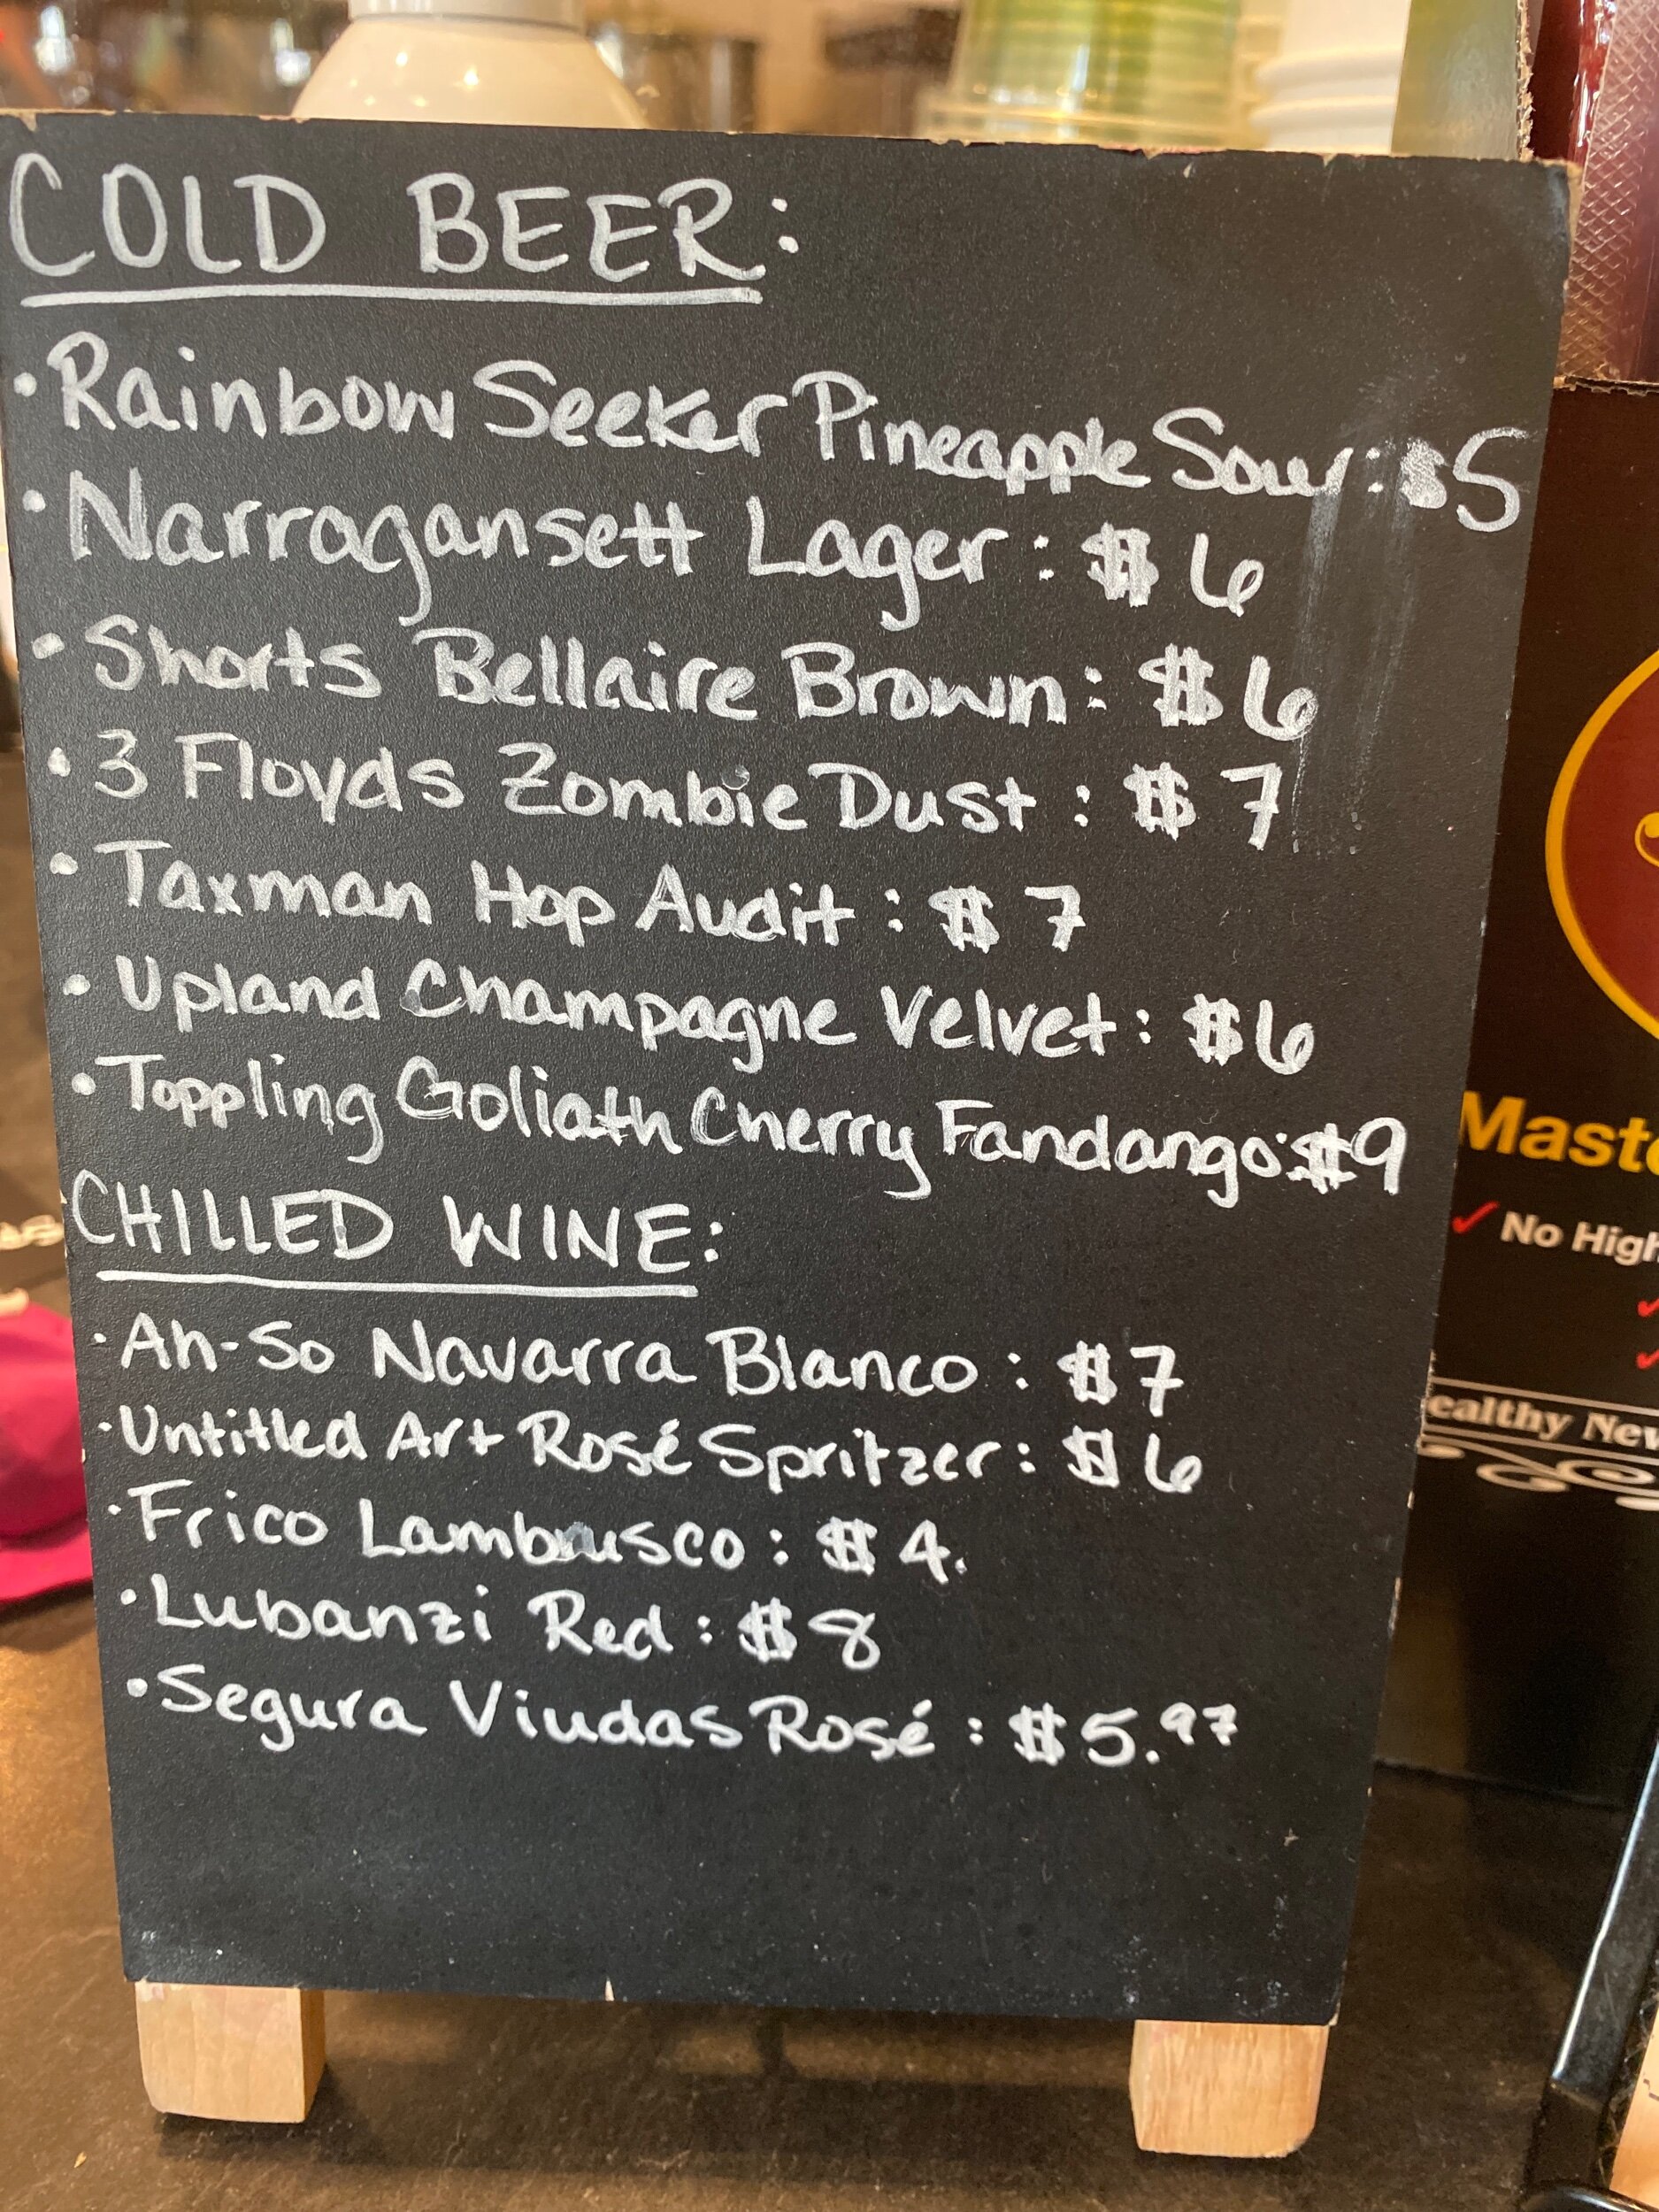 COLD BEER:
• Rainbow Seeker Pineapple Sour: $5
• Narragansett Lager: $6
• Shorts Bellaire Brown: $6
• 3 Floyds Zombie Dust: $7
• Taxman Hop Audit: $7
• Upland Champagne Velvet: $6
• Toppling Goliath Cherry Fandango: $9
CHILLED WINE:
• Ah-So Navarra Blanco: $7
• Untitled Art Rosé Spritzer: $6
• Frico Lambrusco: $4.
• Lubanzi Red: $8
• Segura Viudas Rosé: $5.97
Maste
✓ No High
ealthy New